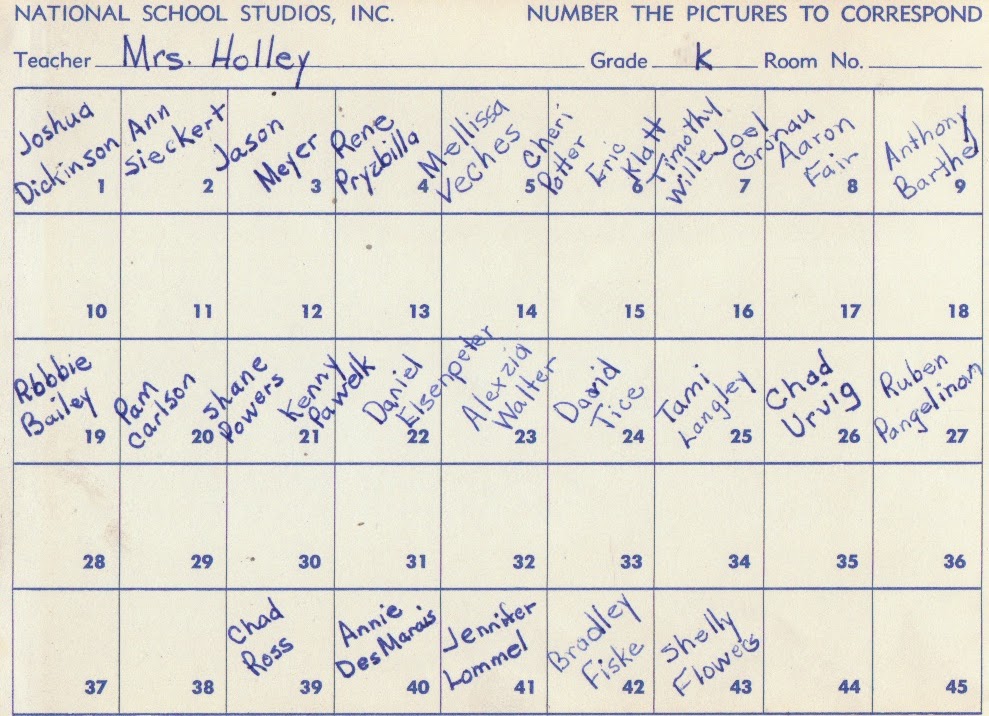 NATIONAL SCHOOL STUDIOS, INC. NUMBER THE PICTURES TO CORRESPOND
Teacher Mrs. Holley Grade K Room No.
Joshua Dickinson 1
Ann Sieckert 2
Jason Meyer 3
Rene Pryzbilla 4
Mellissa Veches
Cheri Potter 5
Eric Klatt 6
Timothy Wille
Joel Gronau 7
Aaron Fair 8
Anthony Barthel 9
10 11 12 13 14 15 16 17 18
Robbbie Bailey 19
Pam Carlson 20
Shane Powers
Kenny Pawelk 21
Daniel Elsenpeter 22
Alexzia Walter 23
David Tice 24
Tami Langley 25
Chad Urvig 26
Ruben Pangelinan 27
28 29 30 31 32 33 34 35 36
37 38
Chad Ross 39
Annie DesMarais 40
Jennifer Lommel 41
Bradley Fiske 42
Shelly Flowers 43
44 45